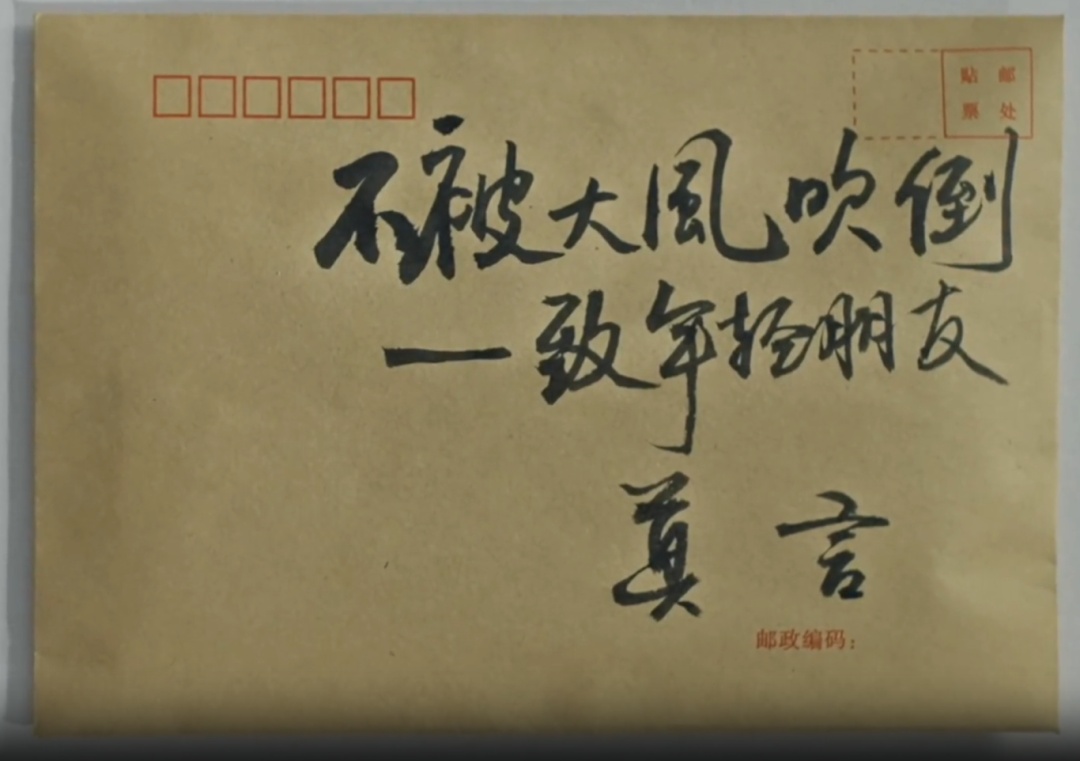 贴邮
票处
不被大風吹倒
一致年轻朋友
莫言
邮政编码：